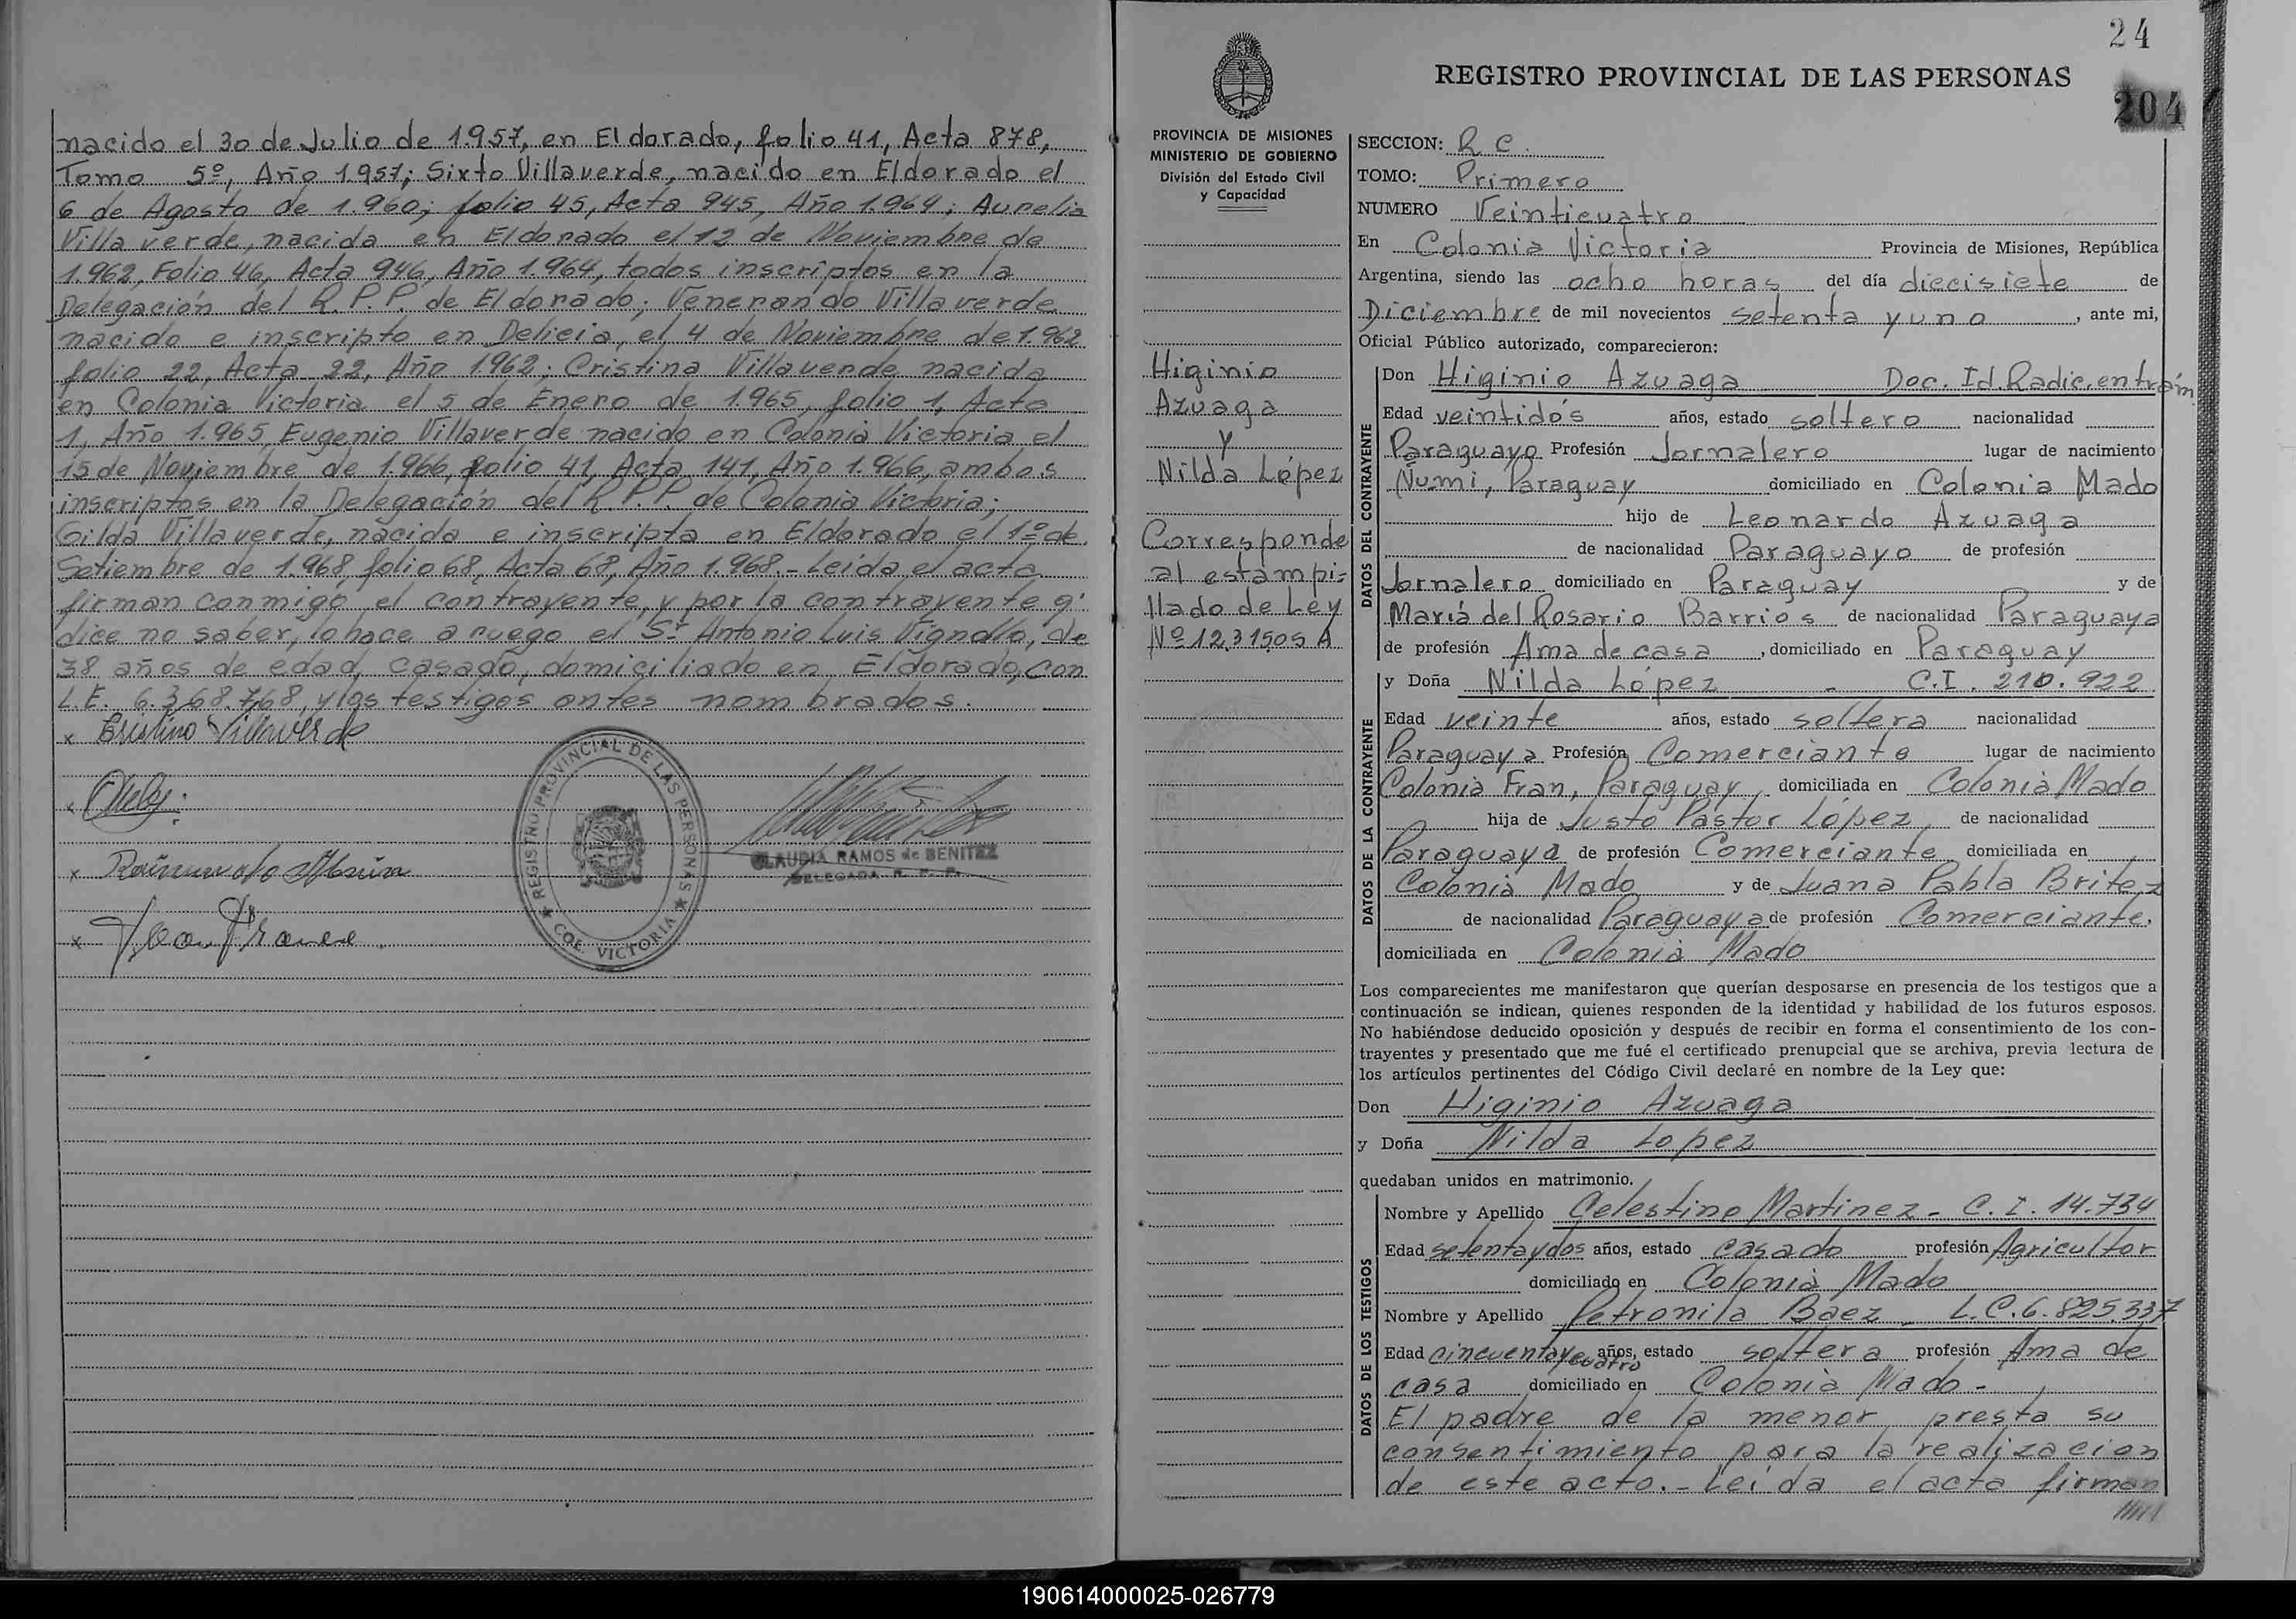 nacido el 30 de Julio de 1.957, en Eldorado, folio 41, Acta 878,
Tomo 5º, Año 1957; Sixto Villaverde, nacido en Eldorado el
6 de Agosto de 1.960; folio 45, Acta 945, Año 1.964; Aurelia
Villaverde, nacida en Eldorado el 12 de Noviembre de
1.962, Folio 46, Acta 946, Año 1.964, todos inscriptos en la
Delegación del R.P.P. de Eldorado; Venerando Villaverde
nacido e inscripto en Delicia, el 4 de Noviembre de 1.962
folio 22, Acta 22, Año 1962; Cristina Villaverde nacida
en Colonia Victoria el 5 de Enero de 1.965, folio 1, Acta
1, Año 1.965, Eugenio Villaverde nacido en Colonia Victoria el
15 de Noviembre de 1.966, folio 41, Acta 141, Año 1.966, ambos
inscriptos en la Delegación del R.P.P. de Colonia Victoria;
Gilda Villaverde, nacida e inscripta en Eldorado el 1º de
Setiembre de 1.968, folio 68, Acta 68, Año 1.968.- Leida el acta
firman conmigo, el contrayente, y por la contrayente q'
dice no saber, lo hace a ruego el Sr. Antonio Luis Vignollo, de
38 años de edad, casado, domiciliado en Eldorado, con
L.E. 6.368.768, y los testigos antes nombrados.
x Cristino Villaverde
x
x
REGISTRO PROVINCIAL DE LAS PERSONAS
COL. VICTORIA
CLAUDIA RAMOS de BENITEZ
DELEGADA R. P. P.
24
REGISTRO PROVINCIAL DE LAS PERSONAS
204
PROVINCIA DE MISIONES
MINISTERIO DE GOBIERNO
División del Estado Civil
y Capacidad
Higinio
Azuaga
y
Nilda López
Corresponde
al estampi=
llado de Ley
Nº 1231505 A
SECCION: R C.
TOMO: Primero
NUMERO Veinticuatro
En Colonia Victoria Provincia de Misiones, República
Argentina, siendo las ocho horas del día diecisiete de
Diciembre de mil novecientos setenta y uno, ante mi,
Oficial Público autorizado, comparecieron:
DATOS DEL CONTRAYENTE
Don Higinio Azuaga Doc. Id. Radic. en trám
Edad veintidós años, estado soltero nacionalidad
Paraguayo Profesión Jornalero lugar de nacimiento
Ñumi, Paraguay domiciliado en Colonia Mado
hijo de Leonardo Azuaga
de nacionalidad Paraguayo de profesión
Jornalero domiciliado en Paraguay y de
María del Rosario Barrios de nacionalidad Paraguaya
de profesión Ama de casa, domiciliado en Paraguay
DATOS DE LA CONTRAYENTE
y Doña Nilda López - C.I. 210.922
Edad veinte años, estado soltera nacionalidad
Paraguaya Profesión Comerciante lugar de nacimiento
Colonia Fran, Paraguay, domiciliada en Colonia Mado
hija de Justo Pastor López, de nacionalidad
Paraguaya de profesión Comerciante domiciliada en
Colonia Mado y de Juana Pabla Britez
de nacionalidad Paraguaya de profesión Comerciante,
domiciliada en Colonia Mado
Los comparecientes me manifestaron que querían desposarse en presencia de los testigos que a
continuación se indican, quienes responden de la identidad y habilidad de los futuros esposos.
No habiéndose deducido oposición y después de recibir en forma el consentimiento de los con-
trayentes y presentado que me fué el certificado prenupcial que se archiva, previa lectura de
los artículos pertinentes del Código Civil declaré en nombre de la Ley que:
Don Higinio Azuaga
y Doña Nilda Lopez
quedaban unidos en matrimonio.
DATOS DE LOS TESTIGOS
Nombre y Apellido Celestino Martinez - C.I. 14.734
Edad setenta y dos años, estado casado profesión Agricultor
domiciliado en Colonia Mado
Nombre y Apellido Petronila Baez - L.C. 6.825.337
Edad cincuenta y cuatro años, estado soltera profesión Ama de
casa domiciliado en Colonia Mado -
El padre de la menor, presta su
consentimiento para la realización
de este acto. - Leida el acta firman
190614000025-026779